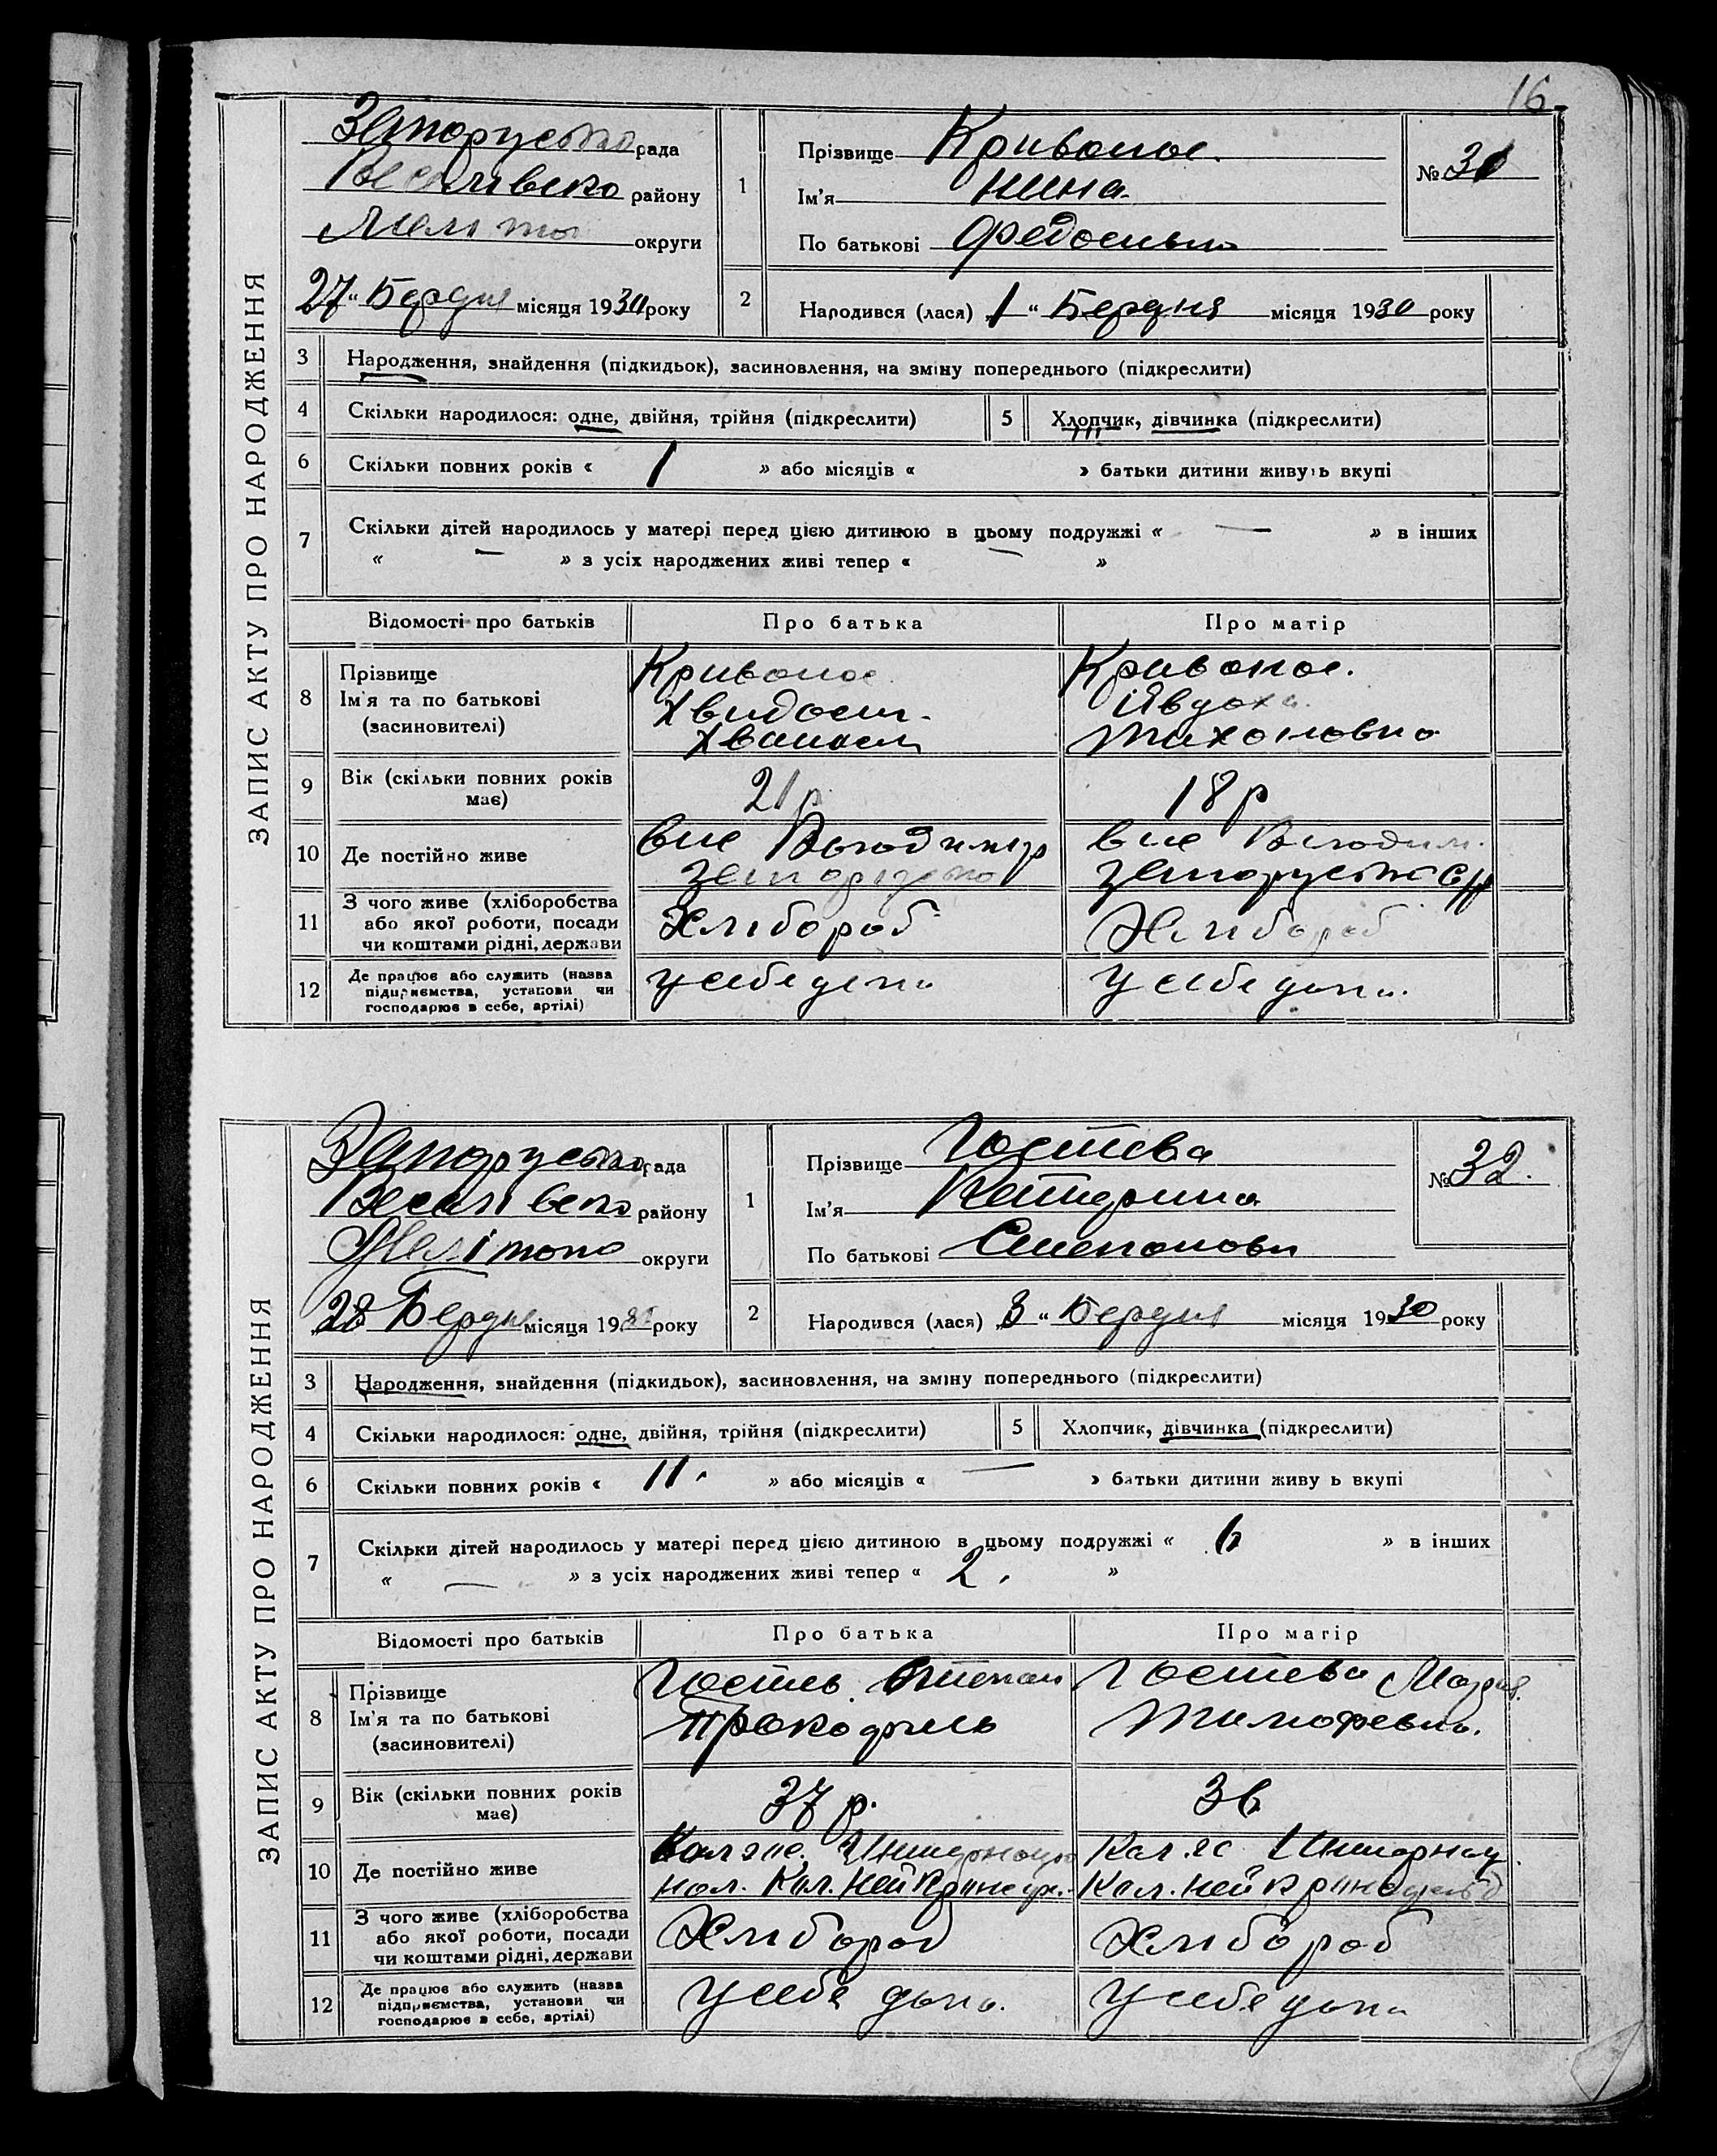 16
ЗАПИС АКТУ ПРО НАРОДЖЕННЯ
Запорузька рада
Веселівско району
Меліто округи
27 "Бердня місяця 1930 року
1
Прізвище Кривонос.
Ім'я Нина.
По батькові Федосивна
№ 31
2
Народився (лася) 1 " Бердня місяця 1930 року
3 Народження, знайдення (підкидьок), засиновлення, на зміну попереднього (підкреслити)
4 Скільки народилося: одне, двійня, трійня (підкреслити) 5 Хлопчик, дівчинка (підкреслити)
6 Скільки повних років « 1 » або місяців « » батьки дитини живуть вкупі
7 Скільки дітей народилось у матері перед цією дитиною в цьому подружжі « — » в інших
« — » з усіх народжених живі тепер « — »
Відомості про батьків Про батька Про матір
8 Прізвище
Ім'я та по батькові
(засиновителі)
Кривонос
Хвидосии.
Хванасии
Кривонос.
Явдоха.
Тихоновна
9 Вік (скільки повних років має) 21 р. 18 р
10 Де постійно живе
вис Володимир
Запорузька
вис Володим.
Запорузька с/р
11 З чого живе (хліборобства
або якої роботи, посади
чи коштами рідні, держави
Хлибороб
Хлибороб
12 Де працює або служить (назва
підприємства, установи чи
господарює в себе, артілі)
у себе дома
у себе дома.
ЗАПИС АКТУ ПРО НАРОДЖЕННЯ
Запорузька рада
Веселівско району
Мелітопо округи
28 Бердня місяця 19 року
1
Прізвище Гостева
Ім'я Катерина
По батькові Степановн
№ 32.
2
Народився (лася) 3 " Бердня місяця 1930 року
3 Народження, знайдення (підкидьок), засиновлення, на зміну попереднього (підкреслити)
4 Скільки народилося: одне, двійня, трійня (підкреслити) 5 Хлопчик, дівчинка (підкреслити)
6 Скільки повних років « 11. » або місяців « — » батьки дитини живу ь вкупі
7 Скільки дітей народилось у матері перед цією дитиною в цьому подружжі « 6 » в інших
« — » з усіх народжених живі тепер « 2. »
Відомості про батьків Про батька Про матір
8 Прізвище
Ім'я та по батькові
(засиновителі)
Гостев. Степан
Прокофиль
Гостева Мария.
Тимофевна.
9 Вік (скільки повних років має) 37 р. 36
10 Де постійно живе
Интернацио
нал. Кол. Нейкринфе
Интернац.
Кол. Нейкринфельд
11 З чого живе (хліборобства
або якої роботи, посади
чи коштами рідні, держави
Хлибороб
Хлибороб
12 Де працює або служить (назва
підприємства, установи чи
господарює в себе, артілі)
у себе дома.
у себе дома